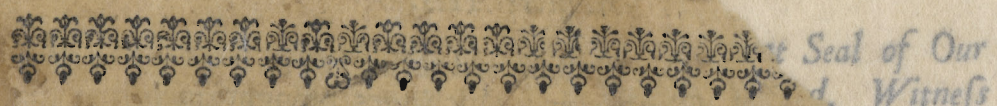 Seal of Our
Witneſs